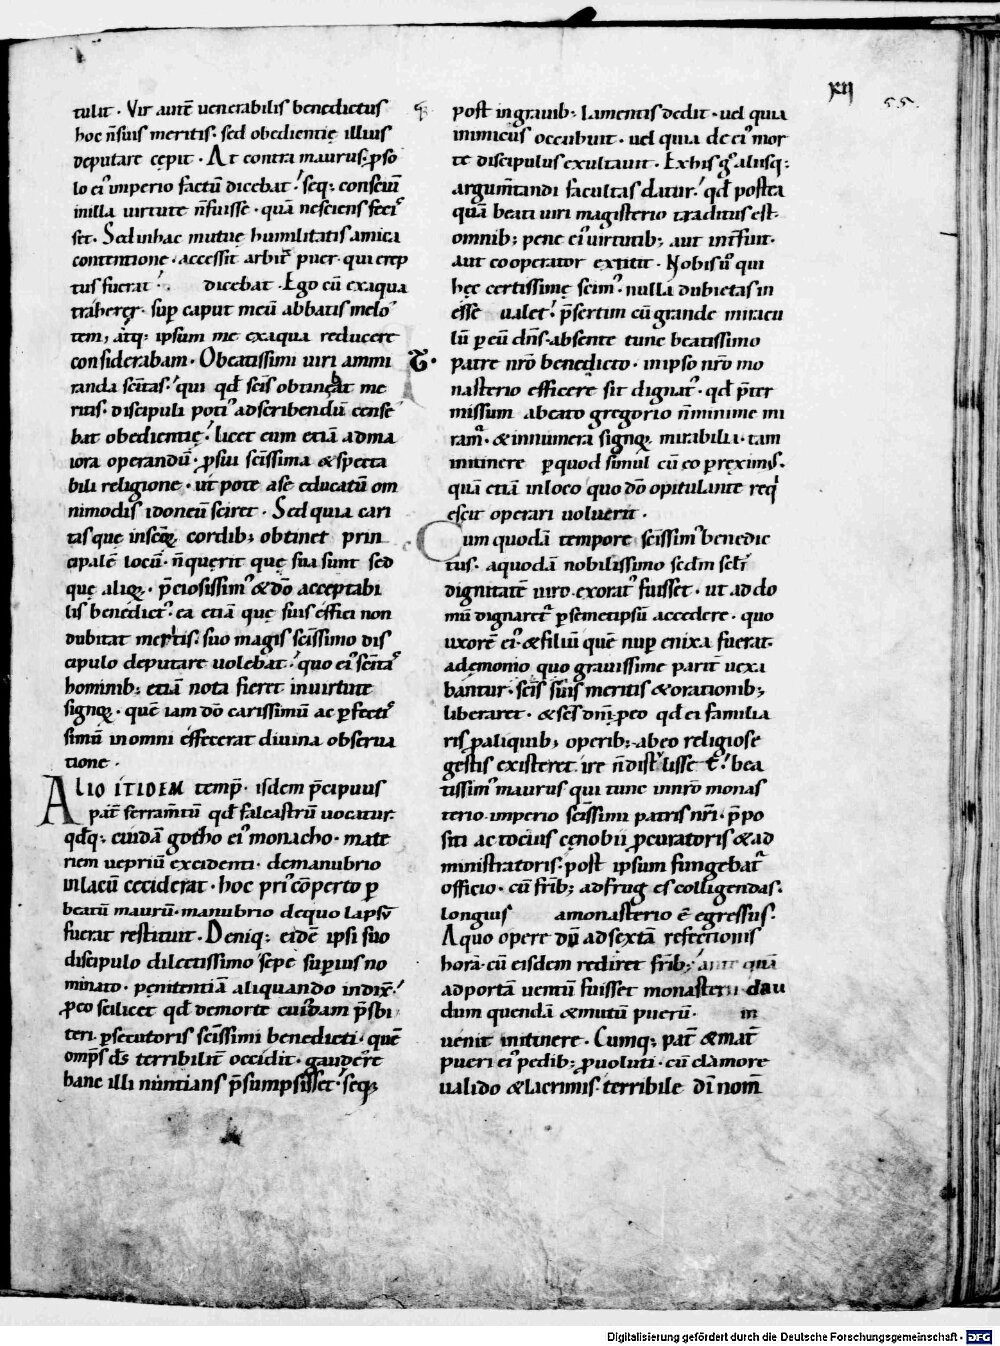 xii
55.
tulit. Vir aut̄ uenerabilis benedictus
hoc n̄ suis meritis. sed obedientię illius
deputare cępit. At contra maurus. ꝓ so
lo ei᾽ imperio factū dicebat. seq; consciū
in illa uirtute n̄ fuisse. quā nesciens feci
set. Sed in hac mutuę humilitatis amica
contentione. accessit arbit̄ puer. qui erep
tus fuerat. dicebat. Ego cū ex aqua
traherer. sup̄ caput meū abbatis melo
tem, atq; ipsum me ex aqua reducere
considerabam. O beatissimi uiri ammi
randa sc̄itas. qui qd̄ sc̄is obtineat me
ritis. discipuli poti᾽ adscribendū cense
bat obedientię. licet eum etiā ad ma
iora operandū. ꝓ sui sc̄issima & specta
bili religione. ut pote a se educatū om
nimodis idoneū sciret. Sed quia cari
tas que in sc̄oꝝ cordib; obtinet prin
cipalē locū. n̄ querit quę sua sunt sed
quę alioꝝ. p̄ciosissim᾽ & dō acceptabi
lis benedict᾽. ea etiā quę suis effici non
dubitat meritis. suo magis sc̄issimo dis
cipulo deputare uolebat. quo ei᾽ sc̄itas
hominib; etiā nota fieret in uirtute
signoꝝ. quē iam dō carissimū ac ꝑfecti
simū in omni effecerat diuina obserua
tione.
ALIO ITIDEM temp̄. isdem p̄cipuus
pat̄ ferram̄tū qd̄ falcastrū uocatur.
qd̄q; cuidā gotho ei᾽ monacho. mate
riem uepriū excidenti. de manubrio
in lacū ceciderat. hoc pri᾽ cōperto ꝑ
beatū maurū. manubrio de quo lapsū
fuerat restituit. Deniq; eidē ipsi suo
discipulo dilectissimo sepe sup̄ius no
minato. penitentiā aliquando indix̄.
ꝓ eo scilicet qd̄ de morte cuiusdam p̄sbi
teri. ꝑsecutoris sc̄issimi benedicti. quē
omp̄s d̄s terribilit̄ occidit. gaudere
hanc illi nuntians p̄sumpsisset. seq;
post in grauib; lamentis dedit. uel quia
inimicus occubuit. uel quia de ei᾽ mor
te discipulus exultauit. Ex his g̊ aliisq;
argum̄tandi facultas datur. qd̄ postea
quā beati uiri magisterio traditus est.
omnib; pene ei᾽ uirtutib; aut int̄fuit.
aut cooperator extitit. Nobis ū qui
hęc certissimę scim᾽. nulla dubietas in
esse ualet. p̄sertim cū grande miracu
lū ꝑ eū dn̄s absente tunc beatissimo
patre nr̄o benedicto. in ipso nr̄o mo
nasterio efficere sit dignat᾽. qd̄ p̄ter
missum a beato gregorio n̄ minime mi
ram᾽. & innumera signoꝝ mirabilia. tam
in itinere ꝑ quod simul cū eo ꝑreximus.
quā etiā in loco quo dō opitulante req
escit operari uoluerit.
Cum quodā tempore sc̄issim᾽ benedic
tus. a quodā nobilissimo sedm̄ sc̄li
dignitatē uiro. exorat᾽ fuisset. ut ad do
mū dignaret̄ ꝑ semetipsū accedere. quo
uxorē ei᾽ & filiū quē nup̄ enixa fuerat.
a demonio quo grauissime parit̄ uexa
bantur. sc̄is suis meritis & orationib;
liberaret. & sc̄s dn̄i. ꝓ eo qd̄ ei familia
ris ꝑ aliquib; operib; ab eo religiose
gestis existeret. ire n̄ distulisset. bea
tissim᾽ maurus qui tunc in nr̄o monas
terio. imperio sc̄issimi patris nr̄i. p̄po
siti ac tocius cęnobii ꝓcuratoris & ad
ministratoris. post ipsum fungebat᾽
officio. cū fr̄ib; ad frug es colligendas.
longius a monasterio ē egressus.
A quo opere dū ad sextā refectionis
horā. cū eisdem rediret fr̄ib; ante quā
ad portā uentū fuisset monasterii. clau
dum quendā & mutū puerū. in
uenit in itinere. Cumq; pat̄ & mat̄
pueri ei᾽ pedib; ꝓuoluti. cū clamore
ualido & lacrimis. terribile di̅ nom̄
Digitalisierung gefördert durch die Deutsche Forschungsgemeinschaft - DFG